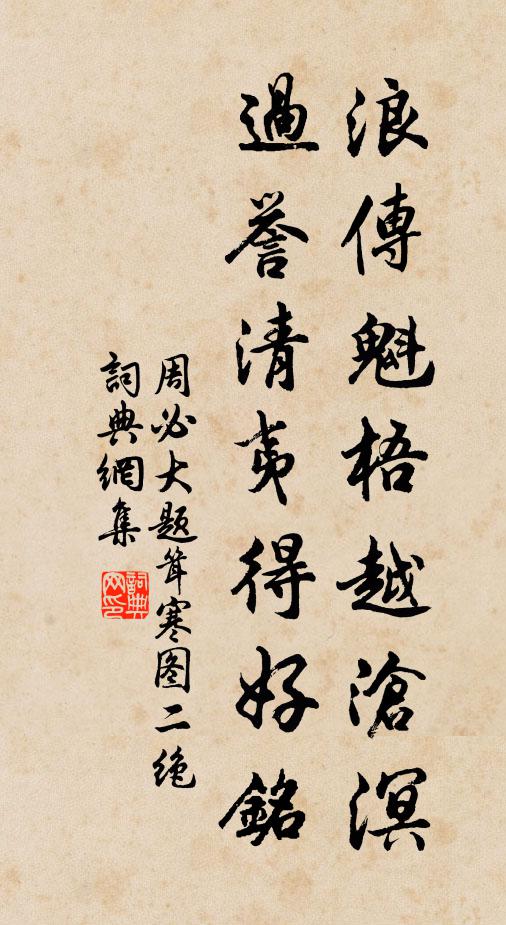 浪傳魁梧越滄溟
過誉清夷得好銘
周必大题耸寒图二绝
詞典網集
詞典网印